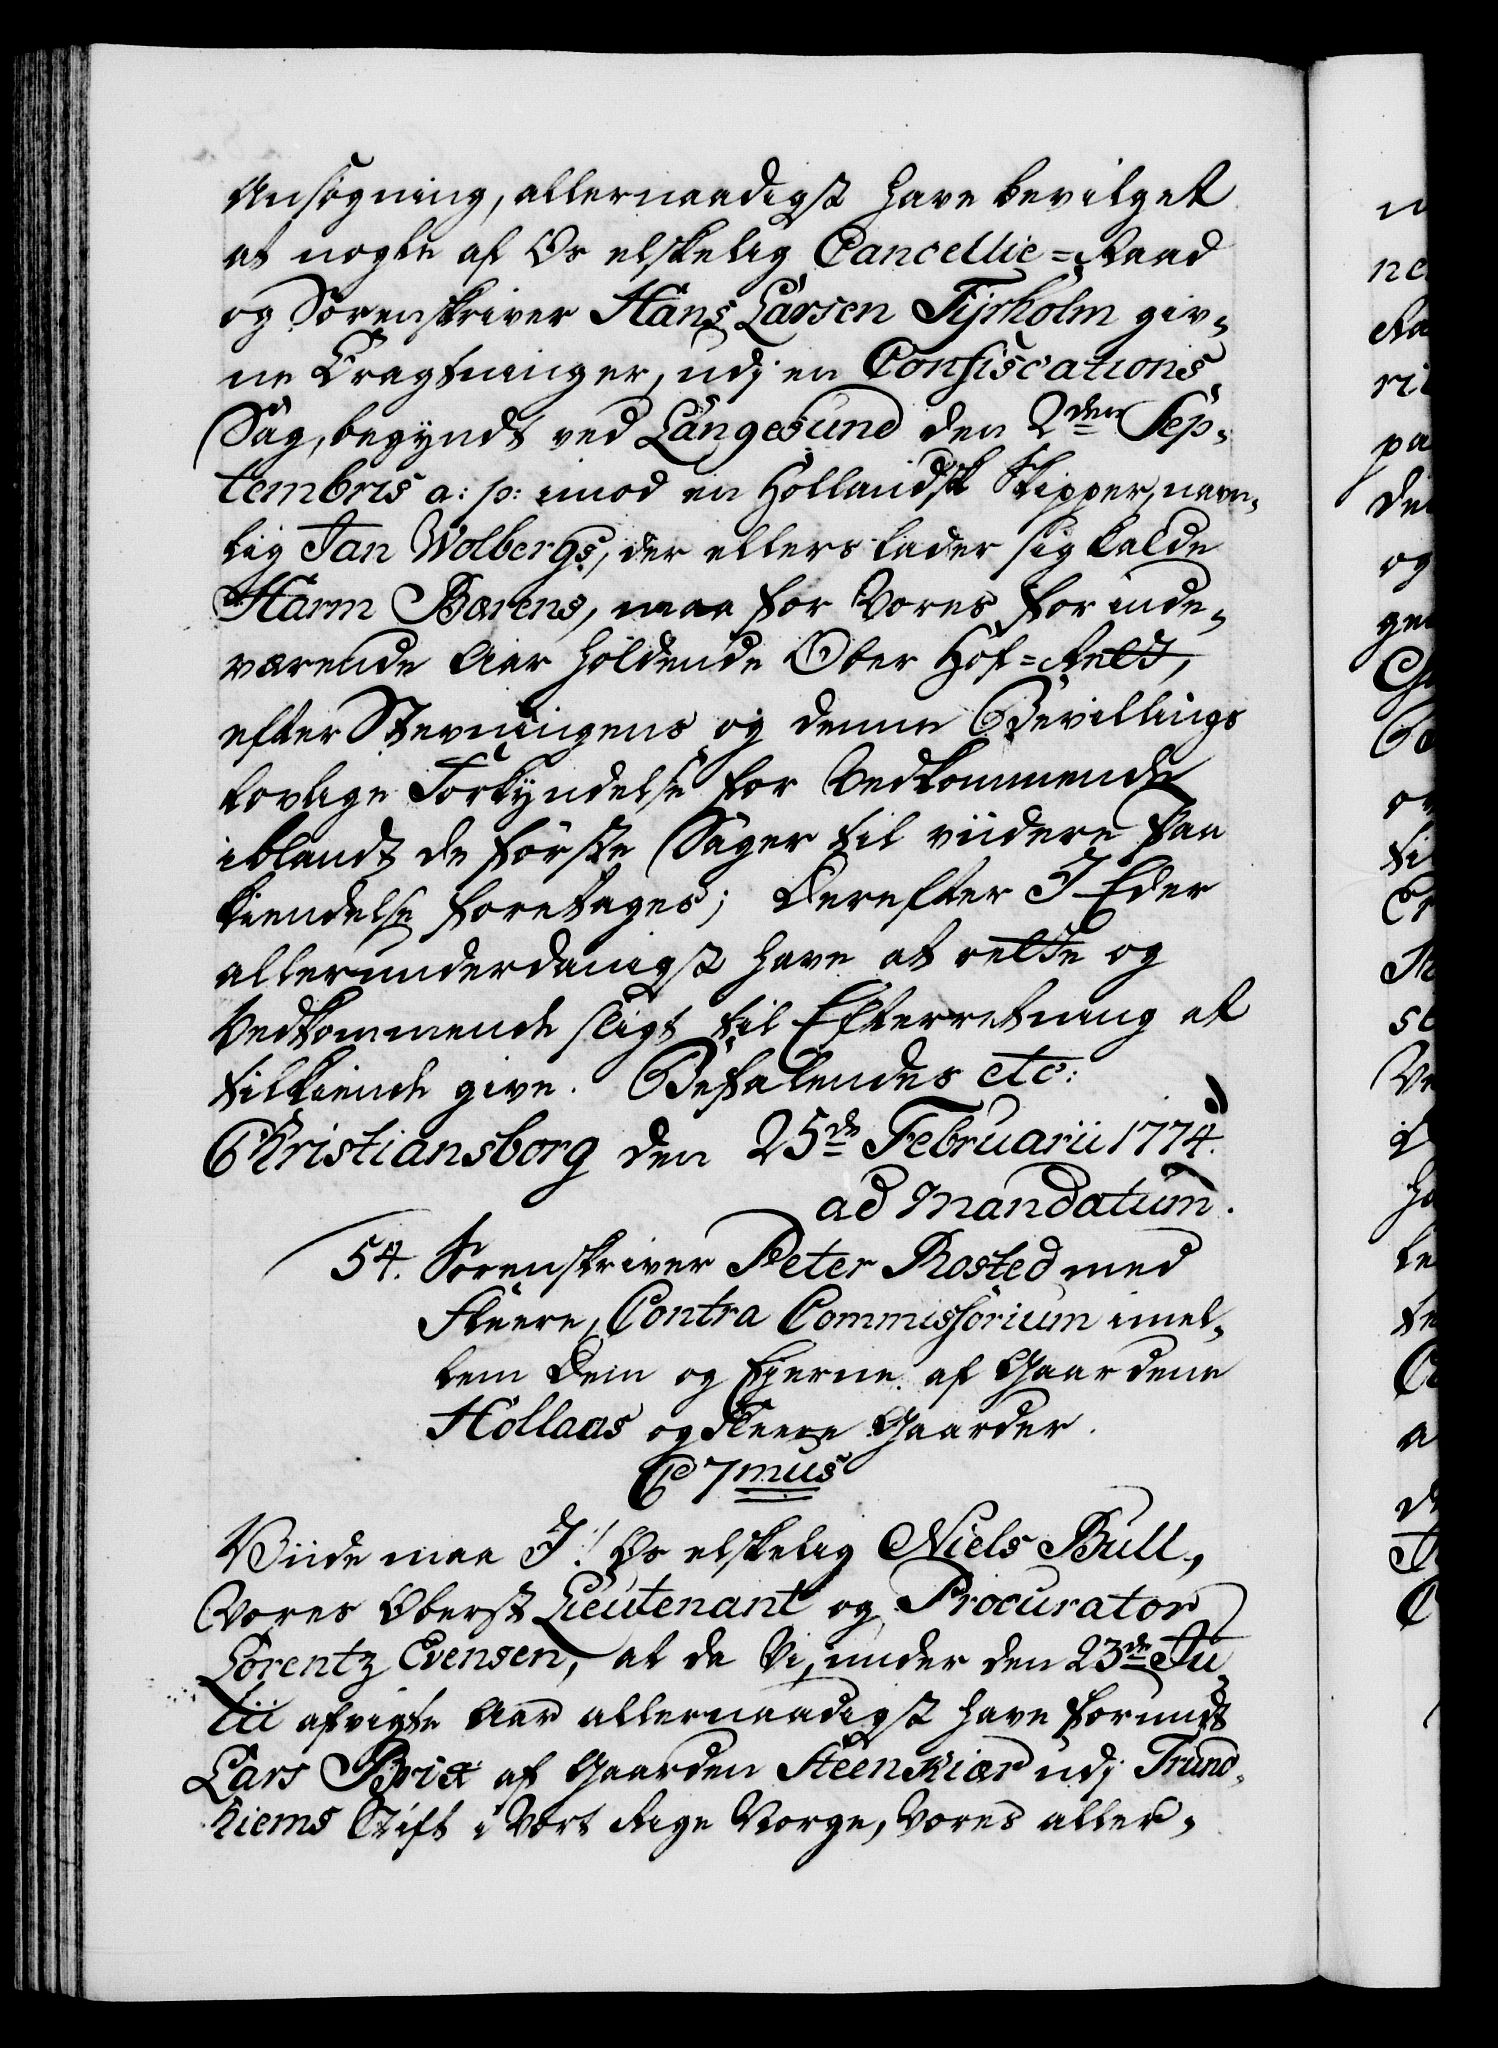 Ansøgning, allernaadigst have bevilget
at nogle af Os elskelig Cancellie=Raad
og Sorenskriver Hans Larsen Tyrholm giv-
ne Eragtninger, udj en Confiscations
Sag, begyndt ved Langesund den 2den Sep-
tembris a: p: imod en Hollandsk Skipper, navn-
lig Jan Wolbergs, der ellers lader sig kalde
Harm Barens, maa for Vores for inde-
værende Aar holdende Ober Hof=Rett,
efter Stevningens og denne Bevillings
lovlige Forkyndelse for Vedkommende
iblandt de første Sager til viidere Paa
kiendelse foretages; Derefter I Eder
allerunderdanigst have at rette og
Vedkommende sligt til Efterretning at
tilkiende give. Befalendes etc:
Christiansborg den 25de Februarii 1774.
ad Mandatum.
54. Sorenskriver Peter Rosted med
Fleere, Contra Commissorium imel-
lem Dem og Ejerne af Gaardene
Hollaas og Fleere Gaarder.
C 7mus
Viide maa I! Os elskelig Niels Bull,
Vores Oberst Lieutenant og Procurator
Lorentz Evensen, at da Vi, under den 23de Ju-
lii afvigte Aar allernaadigst have forundt
Lars Brix af Gaarden Steenkiær udj Trund-
hiems Stift i Vort Rige Norge, Vores aller-